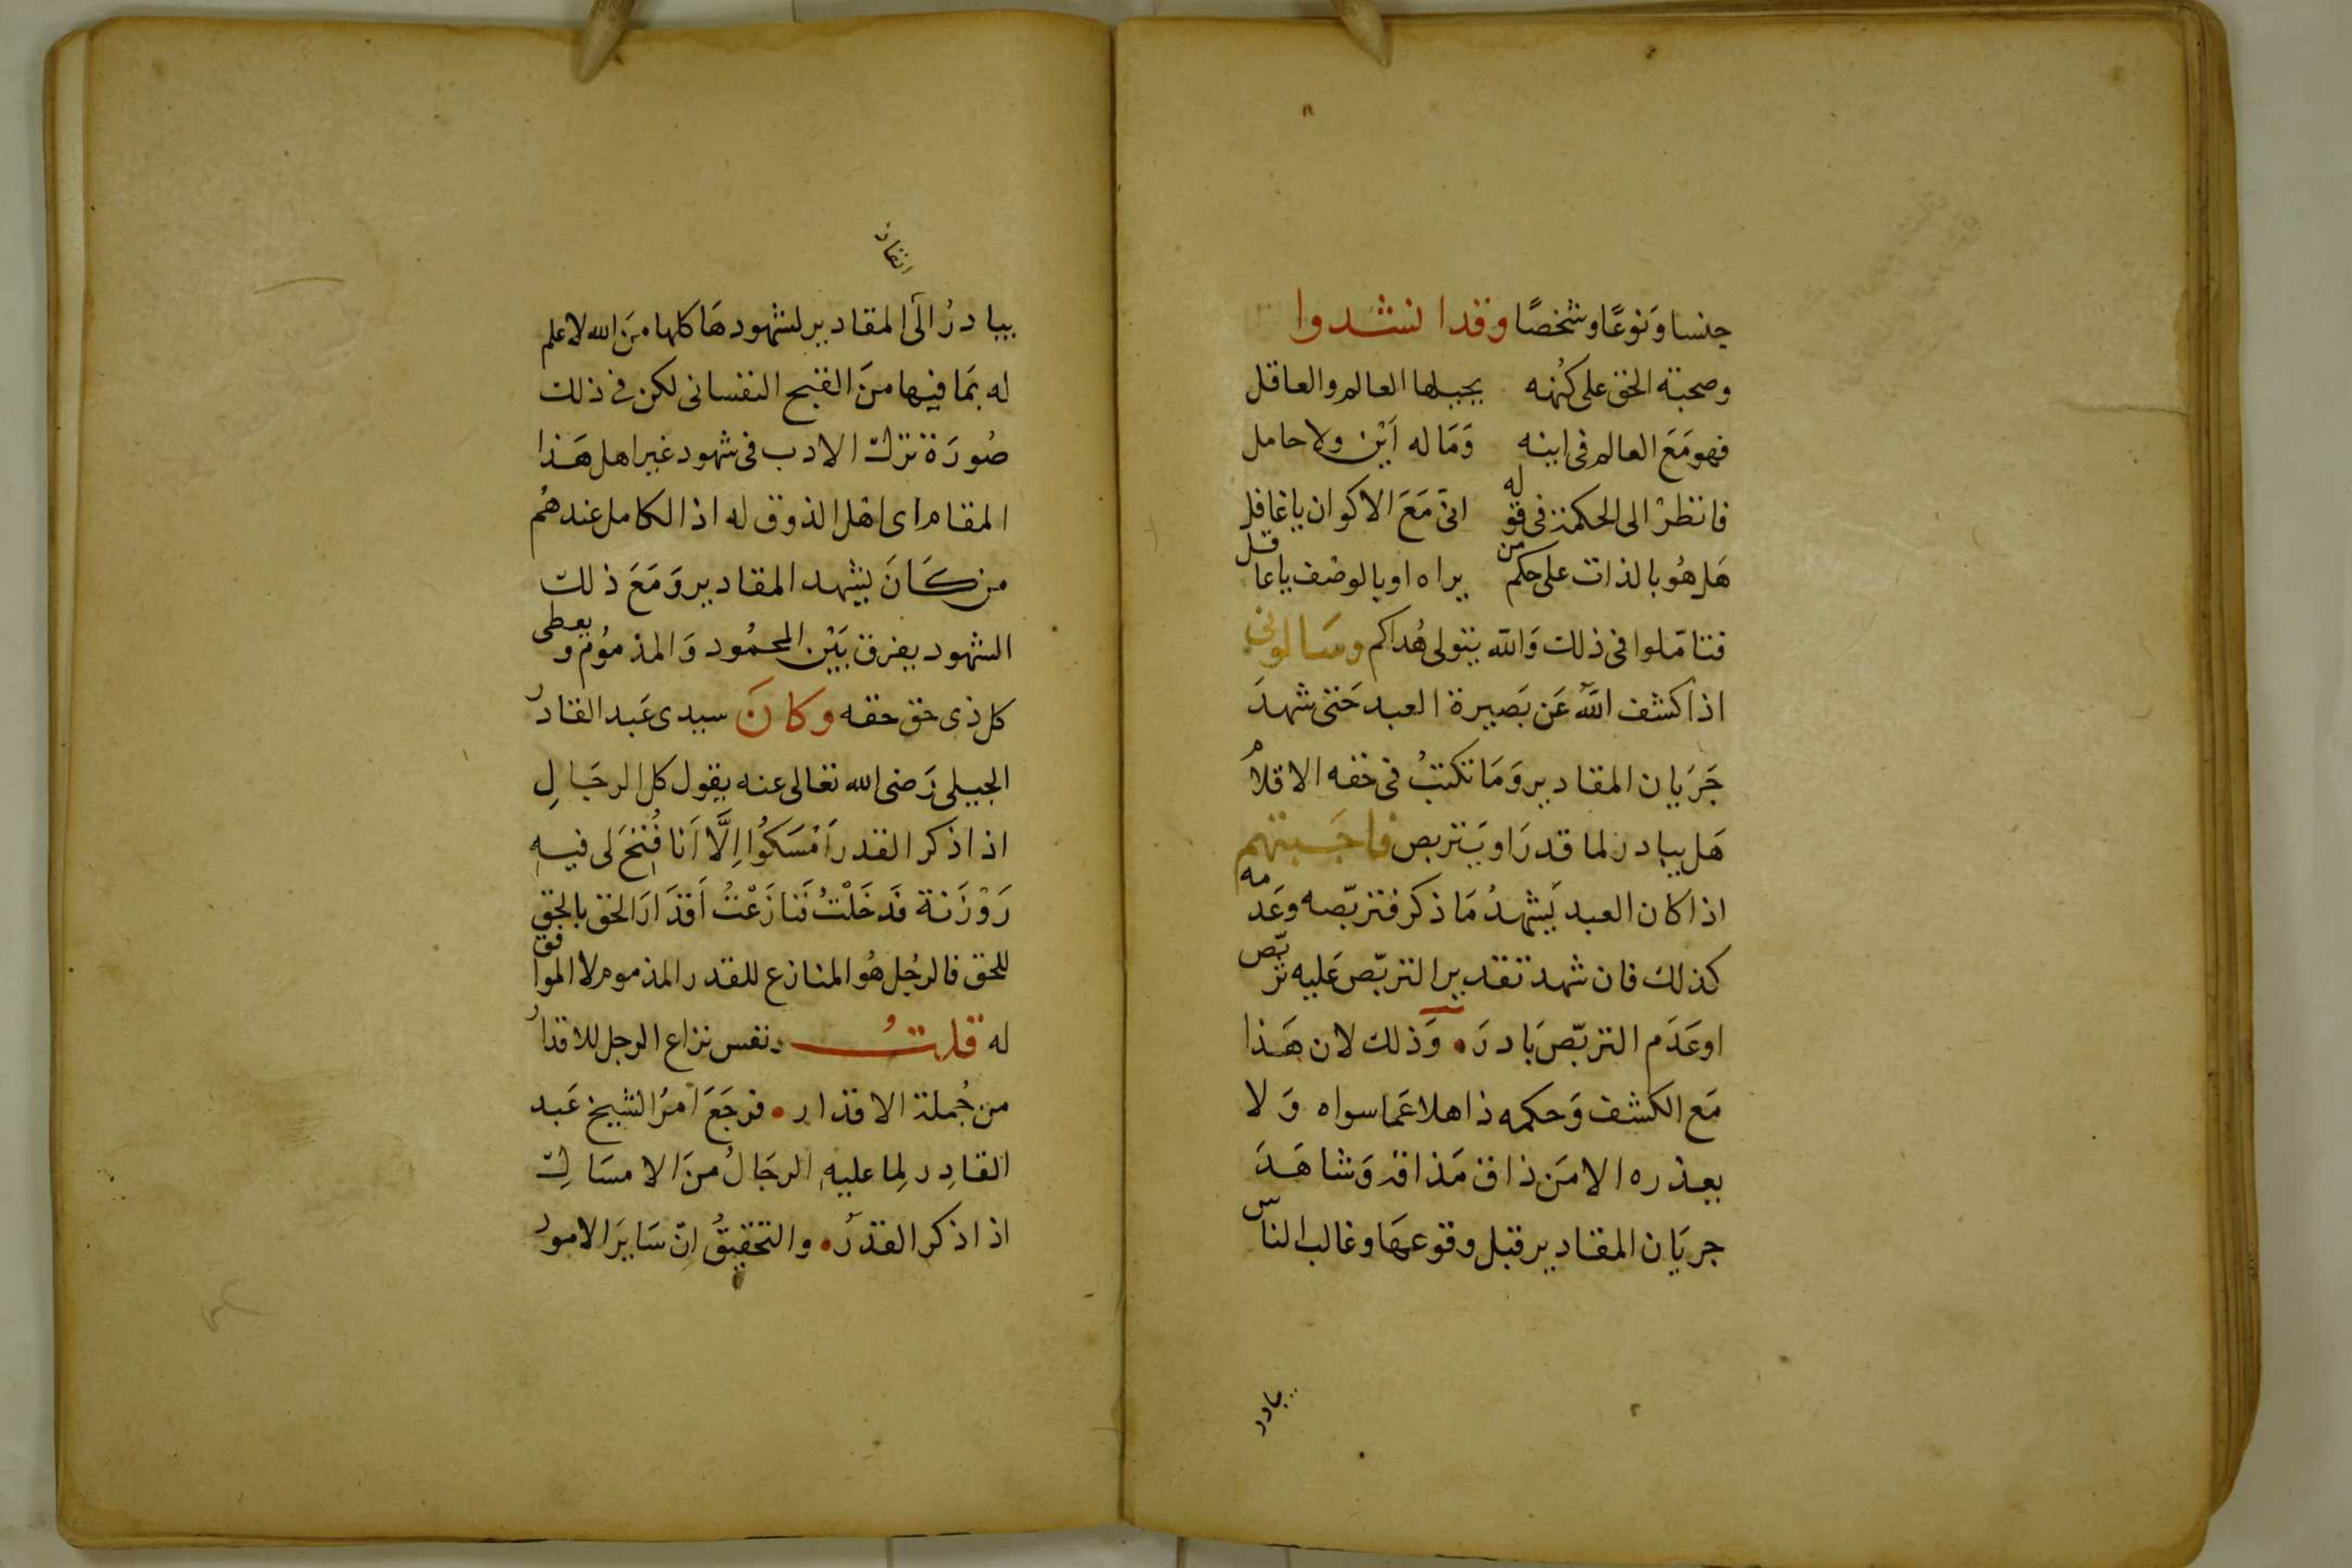 جنسا وَنوعًا وشخصًا وقد انشدوا
وصحبته الحق على كُنهه يجهلها العالم والعاقل
فهو مَعَ العالم فى اينه وَمَا له اَيْن ولا حامل
فانظرْ الى الحكمة فى قوله انى مَعَ الاكوان يا غافل
هَل هُو بالذات على حكم من يراه او بالوصْف يا عاقل
فتامّلوا فى ذلك وَالله يتولى هُداكم وسَالونى
اذا كشف اللهُ عَن بَصيرة العبد حَتى شهدَ
جَرَيان المقادير وَمَا تكتبُ فى حقه الاقلامُ
هَل يبادر لما قدرَ او يَتربص فاجَبتهم
اذا كان العبد يَشهدُ مَا ذكر فتربّصه وعَدمه
كذلك فان شهد تقدير التربّص عَليه تربّص
او عَدَم التربّص بَادرَ • وَذلك لان هَذا
مَع الكشف وَحكمه ذاهلا عَما سواه وَلا
يعذره الا مَن ذاق مَذاقه وَشاهَدَ
جريَان المقادير قبل وقوعهَا وغالب الناس
يبادر
انقاذ
يبادرُ الَى المقادير لشهودهَا كلها مِنَ الله لا علم
له بمَا فيها منَ القبح النفسانى لكن فى ذلك
صُورَة ترك الادب فى شهود غير اهل هَذا
المقام اى اهْل الذوق له اذ الكامل عندهُم
من كَانَ يشهد المقادير وَمَعَ ذلك
الشهود يفرق بَيْن المحمُود وَالمذموُم ويعطى
كل ذى حق حقه وكانَ سيدى عَبد القادر
الجيلى رَضى الله تعالى عنه يقول كل الرجَالِ
اذا ذكر القدر اَمْسَكُوا اِلَّا اَنا فُتِحَ لى فيهِ
رَوْزَنة فَدَخَلْتُ فَنازَعْتُ اَقدَارَ الحق بالحق
للحق فالرجُل هُو المنازع للقدر المذموم لا الموافق
له قلتُ ونفس نزاع الرجل للاقدار
من جُملة الاقدار • فرجَعَ امرُ الشيخ عَبد
القادِر لِما عليهِ الرجَالُ منَ الامسَاك
اذا ذكر القدرُ • والتحقيقُ انّ سَايرَ الامور